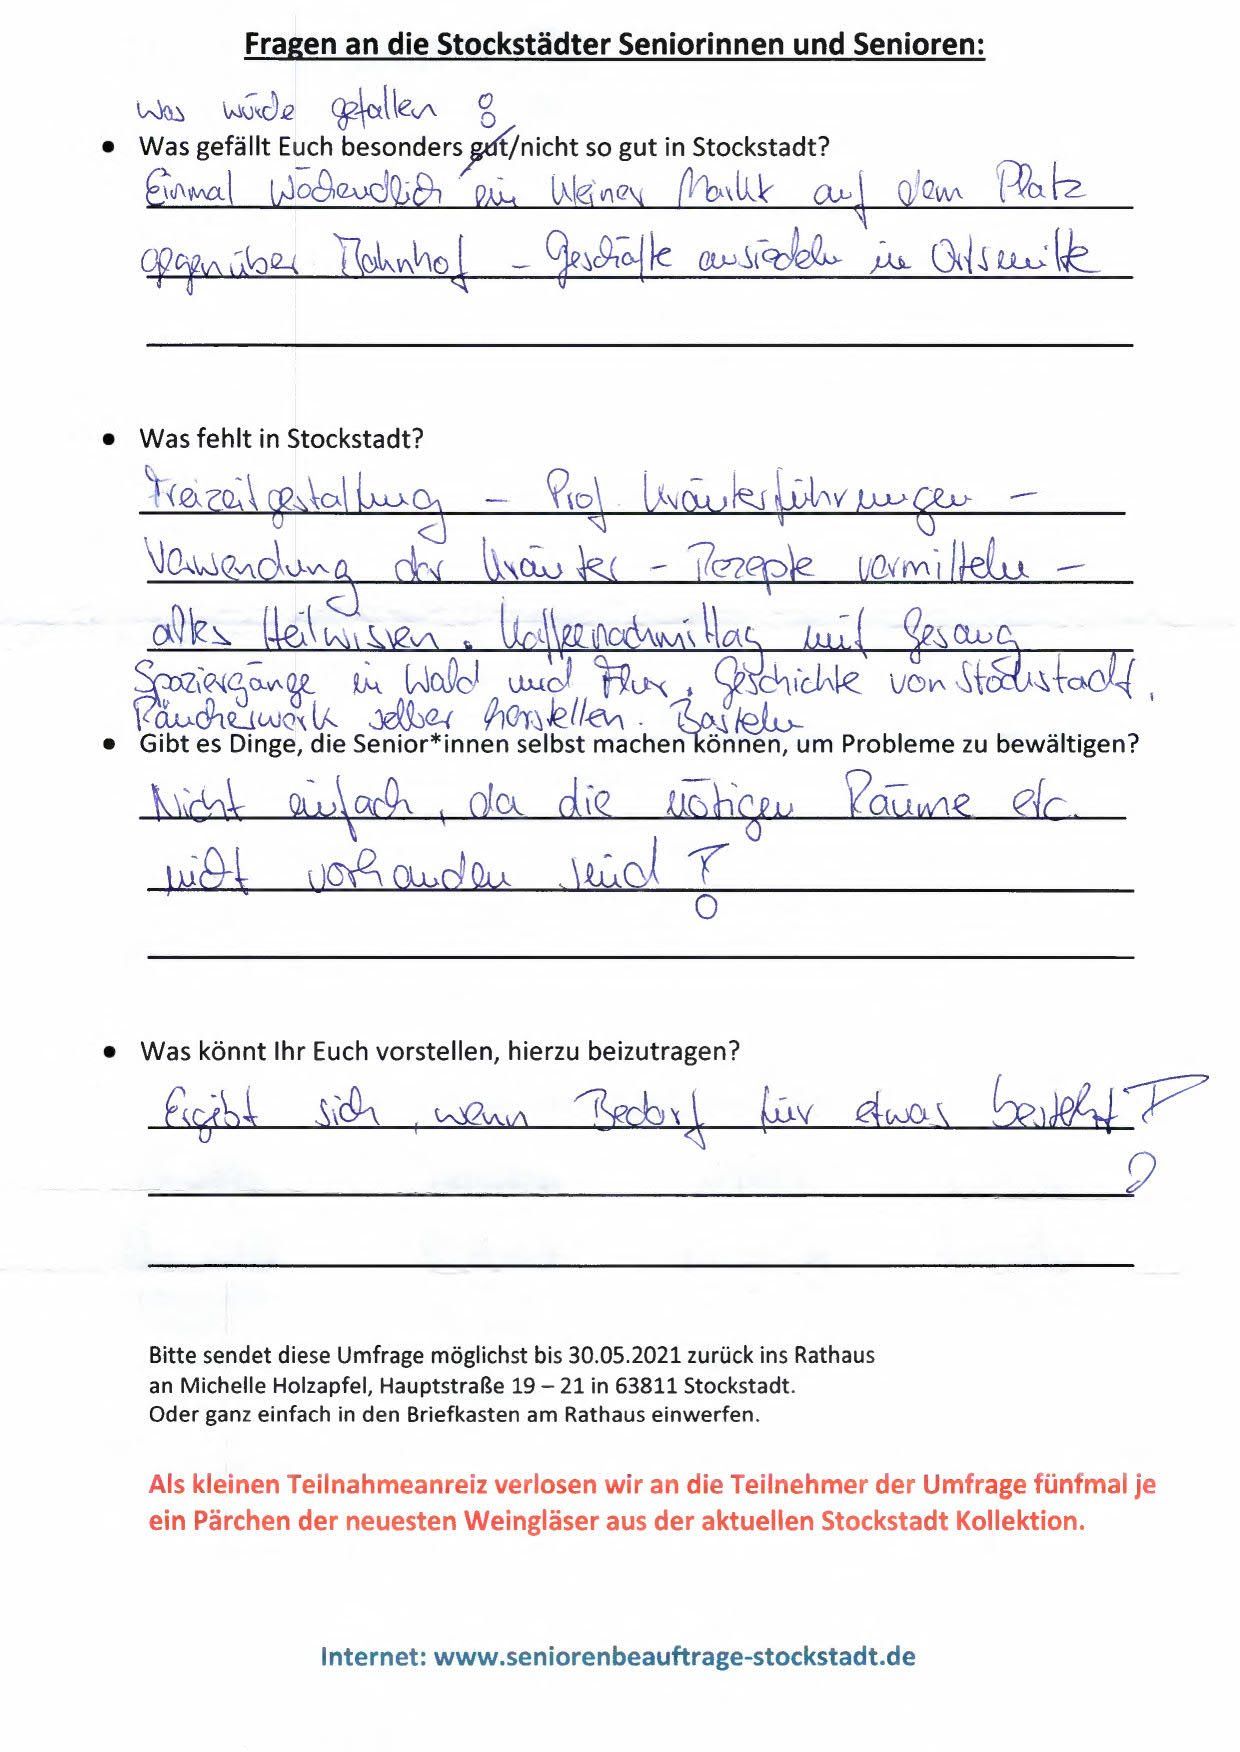 Fragen an die Stockstädter Seniorinnen und Senioren:
Was würde gefallen :
• Was gefällt Euch besonders gut/nicht so gut in Stockstadt?
Einmal Wöchendlich ein kleiner Markt auf dem Platz
gegenüber Bahnhof – Geschäfte ansiedeln in Ortsmitte
• Was fehlt in Stockstadt?
Freizeitgestaltung – Prof. Kräuterführungen –
Verwendung der Kräuter – Rezepte vermitteln –
altes Heilwissen. Kaffeenachmittag mit Gesang
Spaziergänge in Wald und Flur, Geschichte von Stockstadt,
Räucherwerk selber herstellen. Basteln
• Gibt es Dinge, die Senior*innen selbst machen können, um Probleme zu bewältigen?
Nicht einfach, da die nötigen Räume etc.
nicht vorhanden sind !
• Was könnt Ihr Euch vorstellen, hierzu beizutragen?
Ergibt sich, wenn Bedarf für etwas besteht !
Bitte sendet diese Umfrage möglichst bis 30.05.2021 zurück ins Rathaus
an Michelle Holzapfel, Hauptstraße 19 – 21 in 63811 Stockstadt.
Oder ganz einfach in den Briefkasten am Rathaus einwerfen.
Als kleinen Teilnahmeanreiz verlosen wir an die Teilnehmer der Umfrage fünfmal je
ein Pärchen der neuesten Weingläser aus der aktuellen Stockstadt Kollektion.
Internet: www.seniorenbeauftrage-stockstadt.de